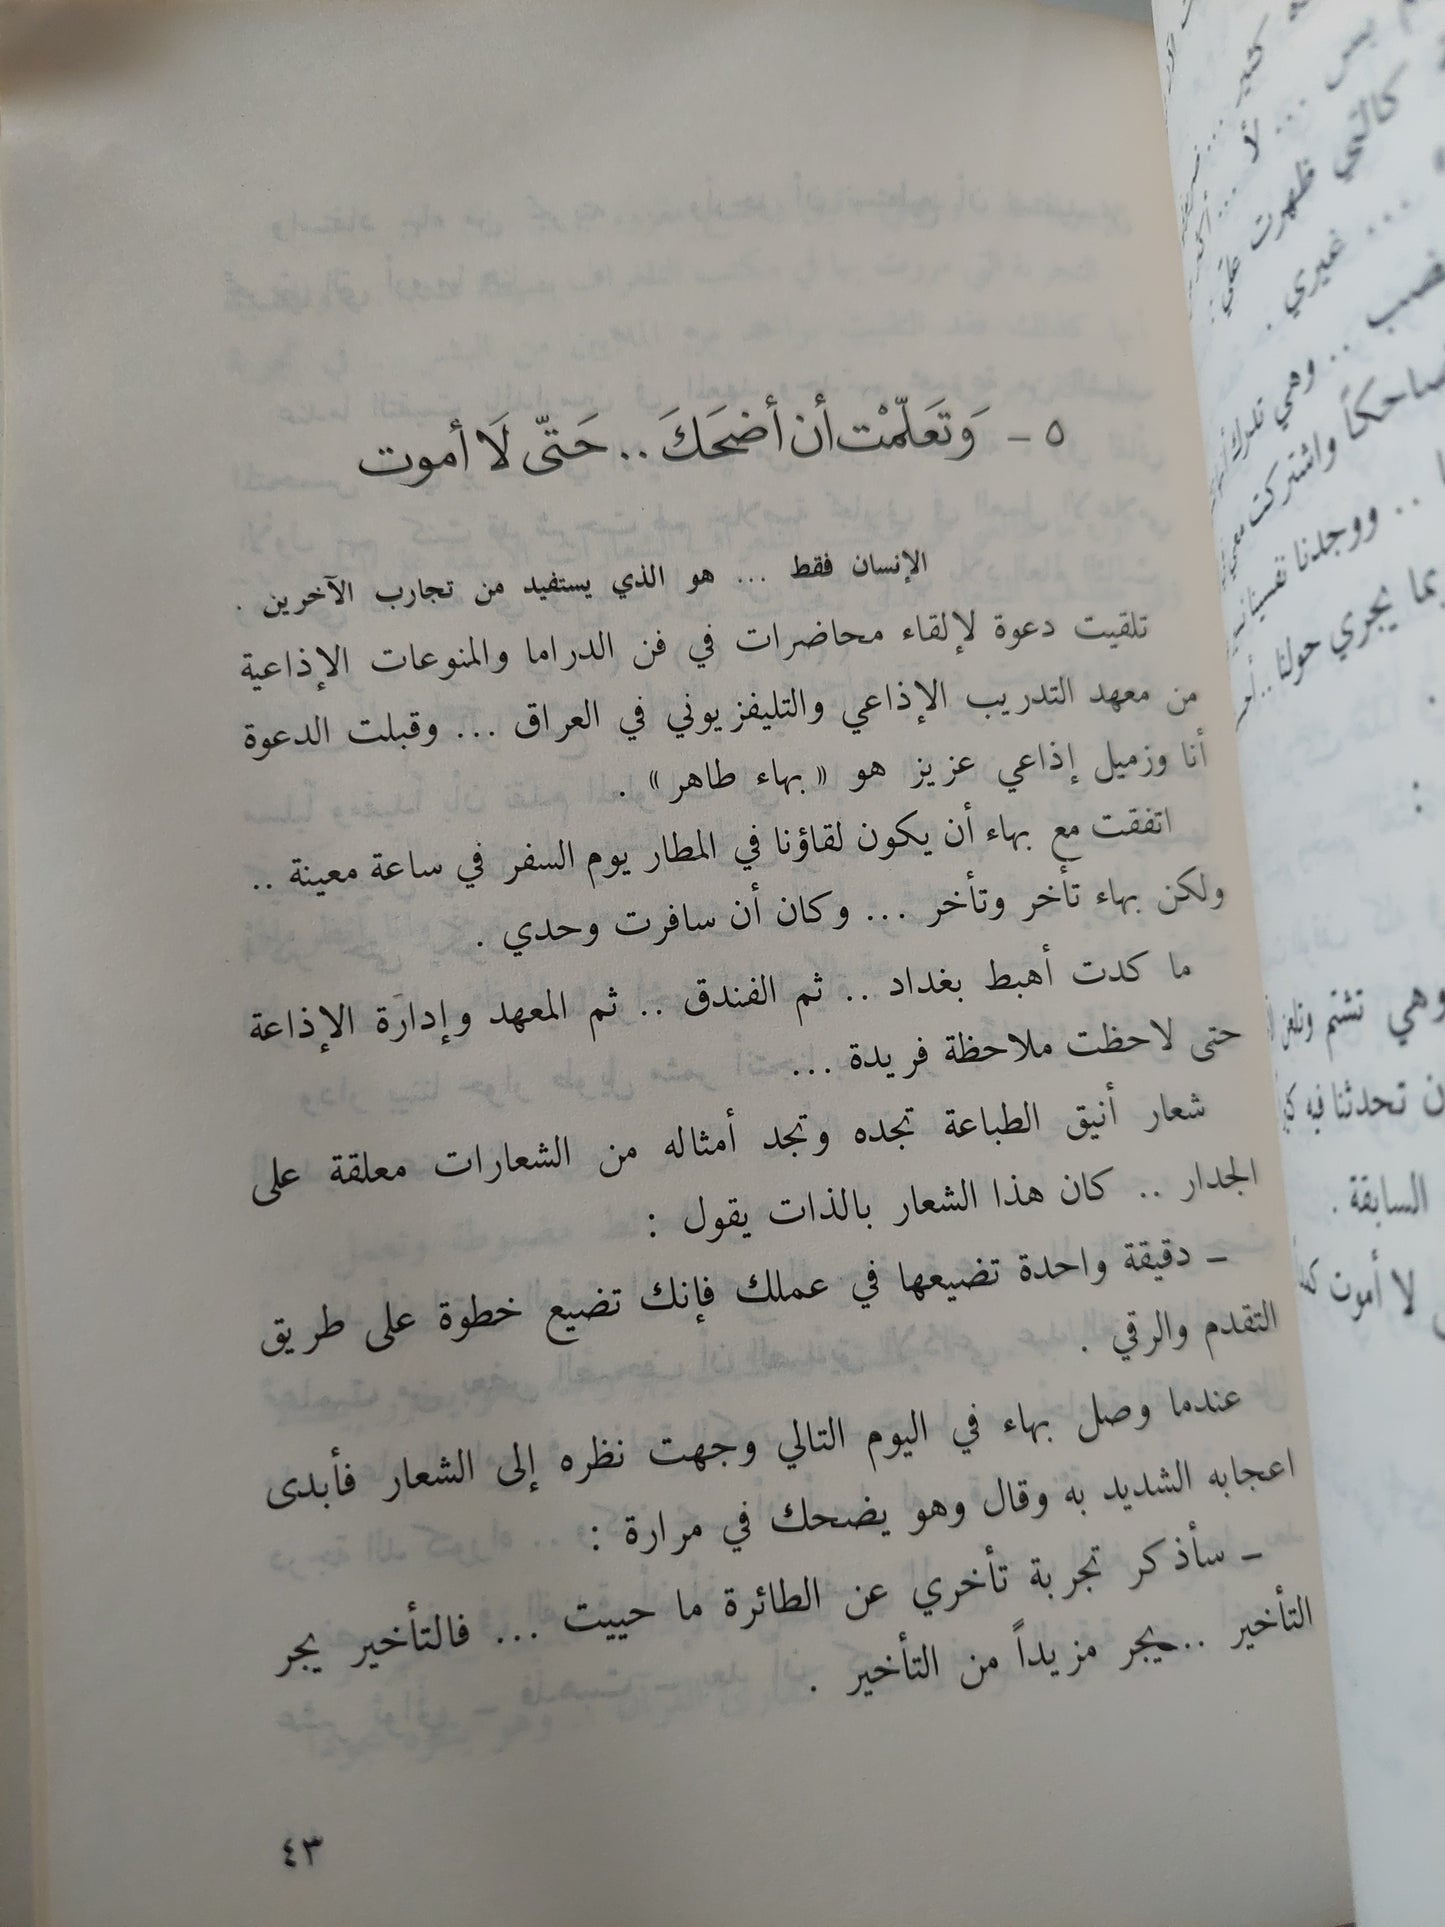 ٥ - وَتَعَلّمْت أن أضحَكَ .. حَتّى لَا أموت
الإنسان فقط ... هو الذي يستفيد من تجارب الآخرين .
تلقيت دعوة لإلقاء محاضرات في فن الدراما والمنوعات الإذاعية
من معهد التدريب الإذاعي والتليفزيوني في العراق ... وقبلت الدعوة
أنا وزميل إذاعي عزيز هو « بهاء طاهر » .
اتفقت مع بهاء أن يكون لقاؤنا في المطار يوم السفر في ساعة معينة ..
ولكن بهاء تأخر وتأخر ... وكان أن سافرت وحدي .
ما كدت أهبط بغداد .. ثم الفندق .. ثم المعهد وإدارة الإذاعة
حتى لاحظت ملاحظة فريدة ...
شعار أنيق الطباعة تجده وتجد أمثاله من الشعارات معلقة على
الجدار .. كان هذا الشعار بالذات يقول :
– دقيقة واحدة تضيعها في عملك فإنك تضيع خطوة على طريق
التقدم والرقي .
عندما وصل بهاء في اليوم التالي وجهت نظره إلى الشعار فأبدى
اعجابه الشديد به وقال وهو يضحك في مرارة :
– سأذكر تجربة تأخري عن الطائرة ما حييت ... فالتأخير يجر
التأخير .. يجر مزيداً من التأخير .
٤٣
كالتي ظهرت علي :
... غيري .
.. وهي تلوك
ضاحكاً واشتركت معي
.. ووجدنا نفسينا
بما يجري حولنا ..
:
وهي تشتم وتلعن
تحدثنا فيه
السابقة .
لا أموت